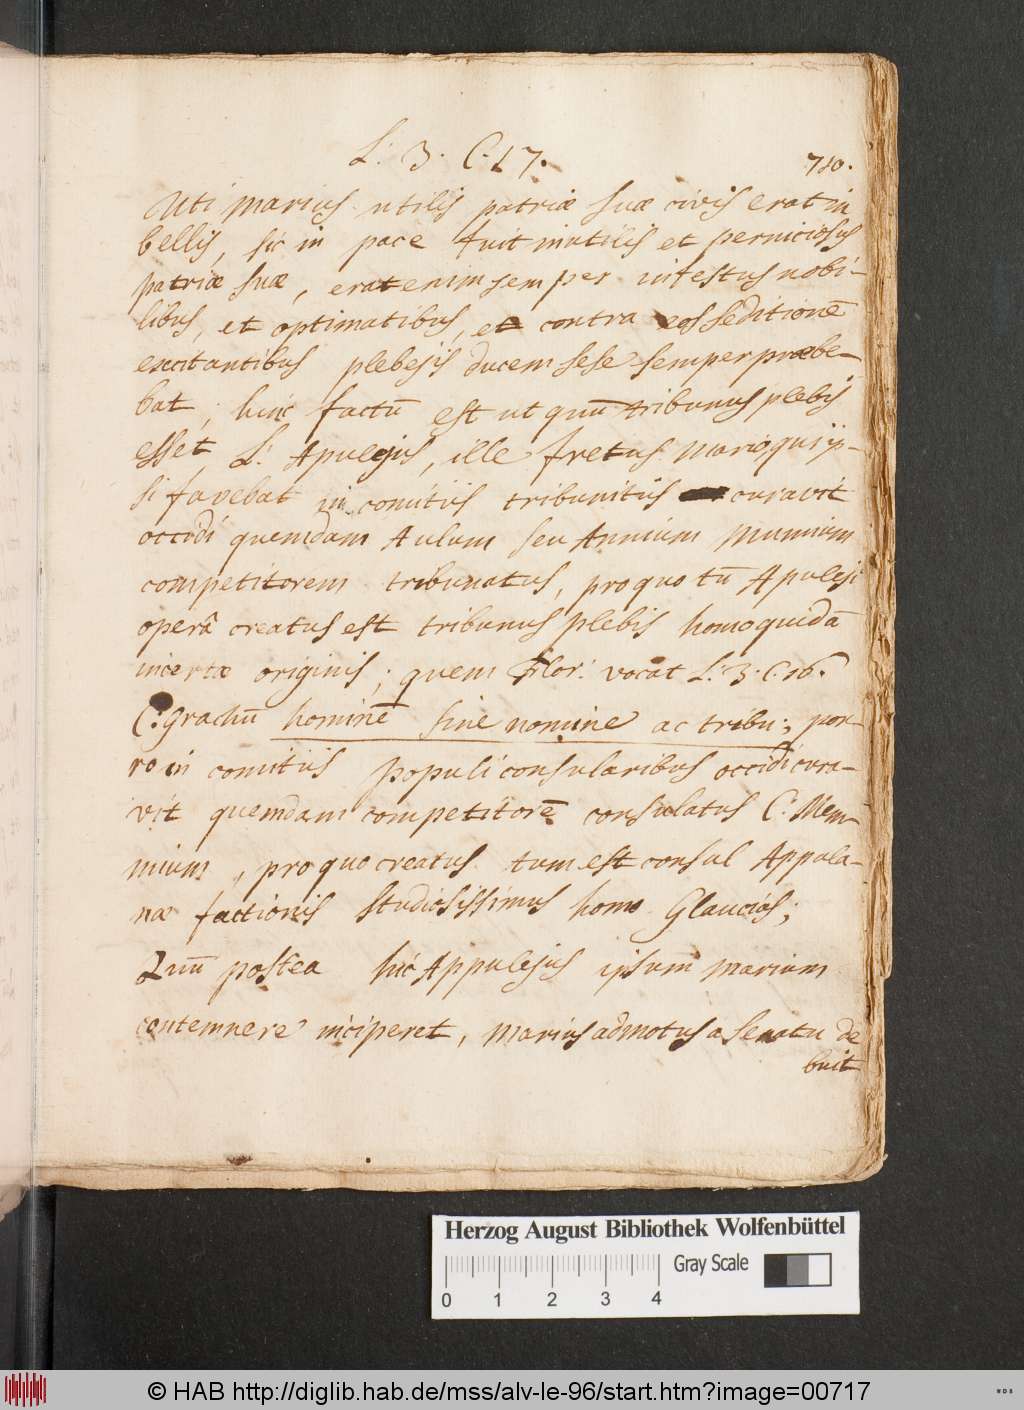 L. 3. C. 17.
710.
Uti Marius utilis patriæ suæ civis erat in
bellis, sic in pace fuit inutilis et perniciosus
patriæ suæ, erat enim semper infestus nobi-
libus, et optimatibus, et contra eos seditionē
excitantibus plebejis ducem sese semper præbe-
bat; hinc factū est ut quū tribunus plebis
esset L. Apulejus, ille fretus Mario qui ip-
si favebat in comitiis tribunitiis curavit
occidi quemdam Aulum seu Annium Mumium
competitorem tribunatus, pro quo tū Apuleji
operâ creatus est tribunus plebis homo quidā
incertæ originis; quem Flor. vocat L. 3. C. 16.
C. Grachū hominē sine nomine ac tribu; por-
ro in comitiis populi consularibus occidi cura-
vit quemdam competitorē consulatus C. Mem-
mium, pro quo creatus tum est consul Appula-
næ factionis studiosissimus homo Glaucias;
Quū postea hic Appulejus ipsum Marium
contemnere inciperet, Marius admotus a Senatu de
buit
Herzog August Bibliothek Wolfenbüttel
Gray Scale
0 1 2 3 4
© HAB http://diglib.hab.de/mss/alv-le-96/start.htm?image=00717